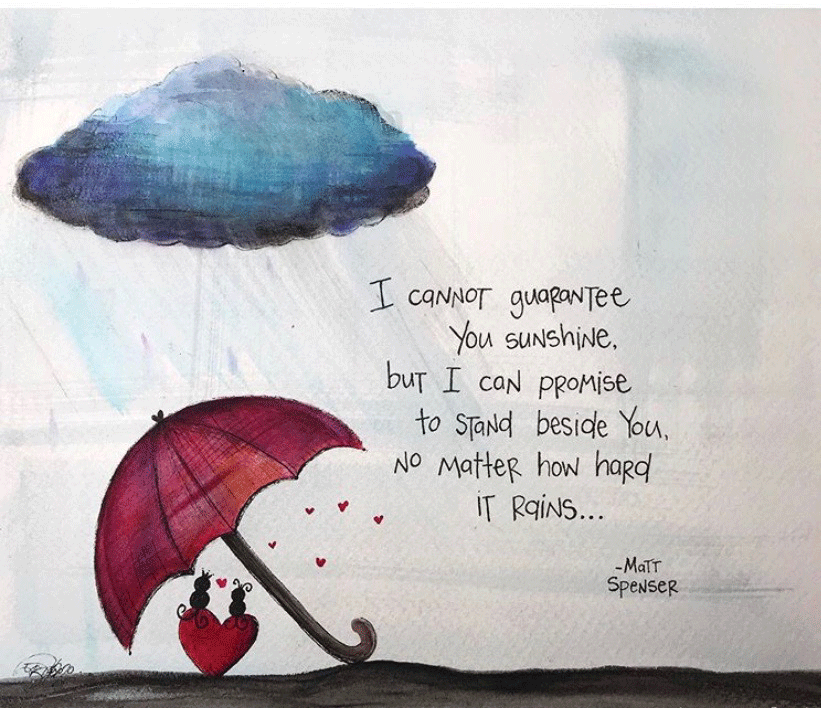 I cannot guarantee
you sunshine,
but I can promise
to stand beside you,
no matter how hard
it rains...
-Matt
Spenser